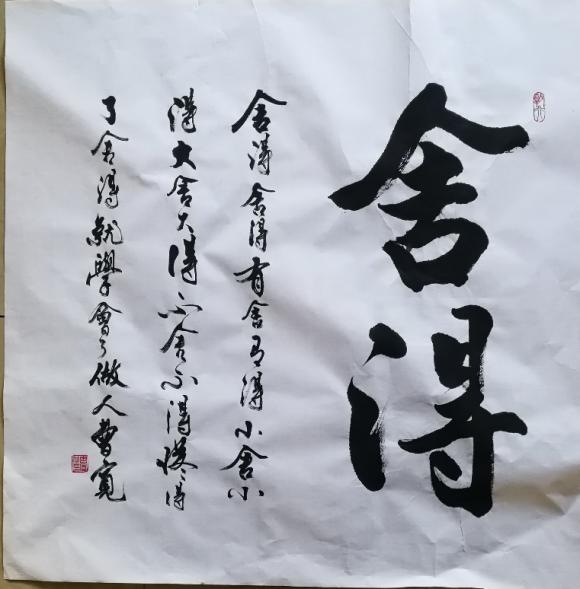 舍得
舍得舍得有舍有得小舍小
得大舍大得不舍不得懂得
了舍得就學會了做人曹寬